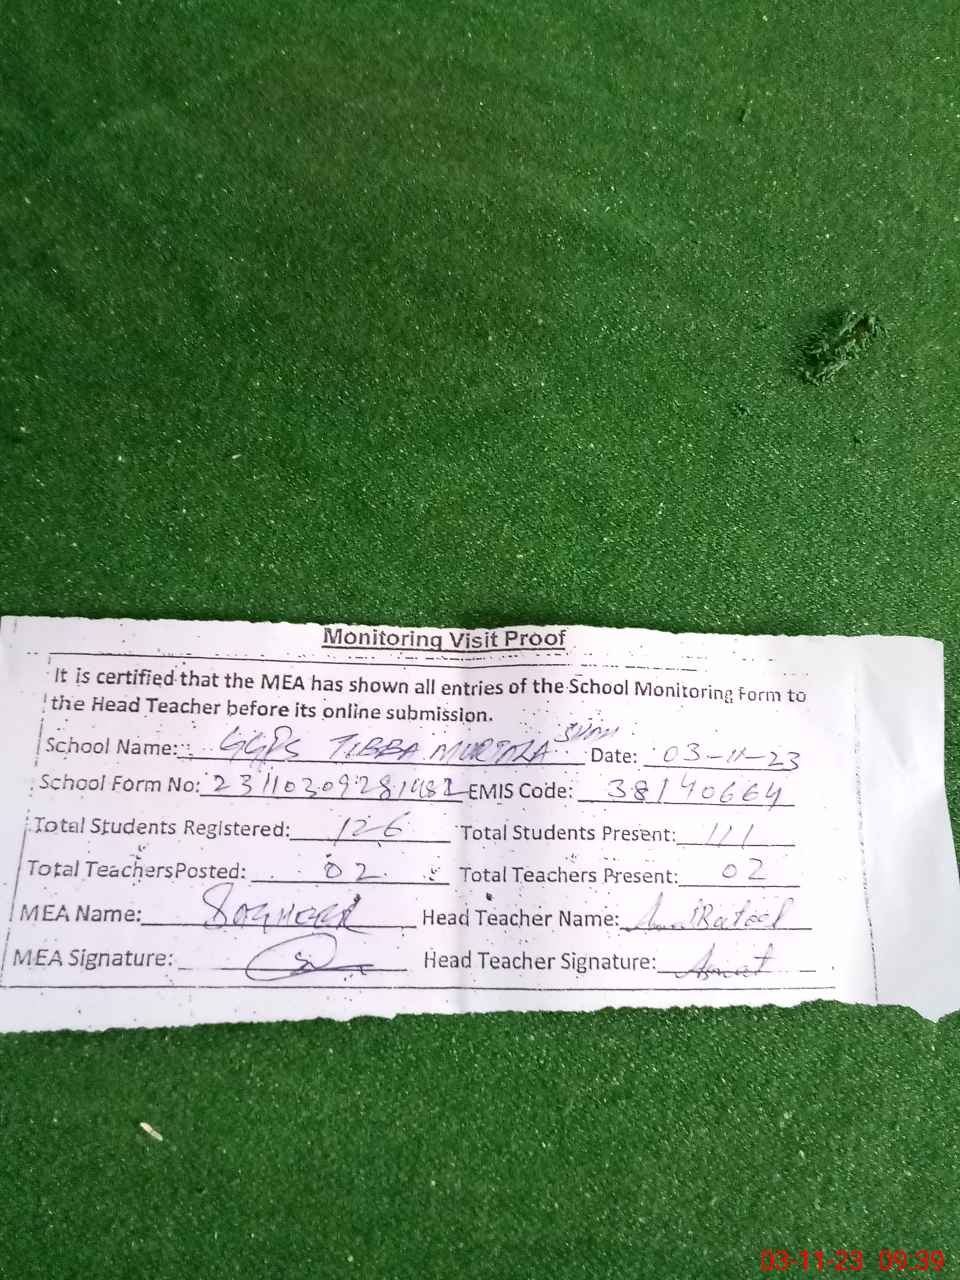 Monitoring Visit Proof
It is certified that the MEA has shown all entries of the School Monitoring Form to
the Head Teacher before its online submission.
School Name: GGPS TIBBA MURTAZA Date: 03-11-23
School Form No: EMIS Code: 38140664
Total Students Registered: 126 Total Students Present: 111
Total Teachers Posted: 02 Total Teachers Present: 02
MEA Name: Head Teacher Name:
MEA Signature: Head Teacher Signature:
03-11-23 09:39